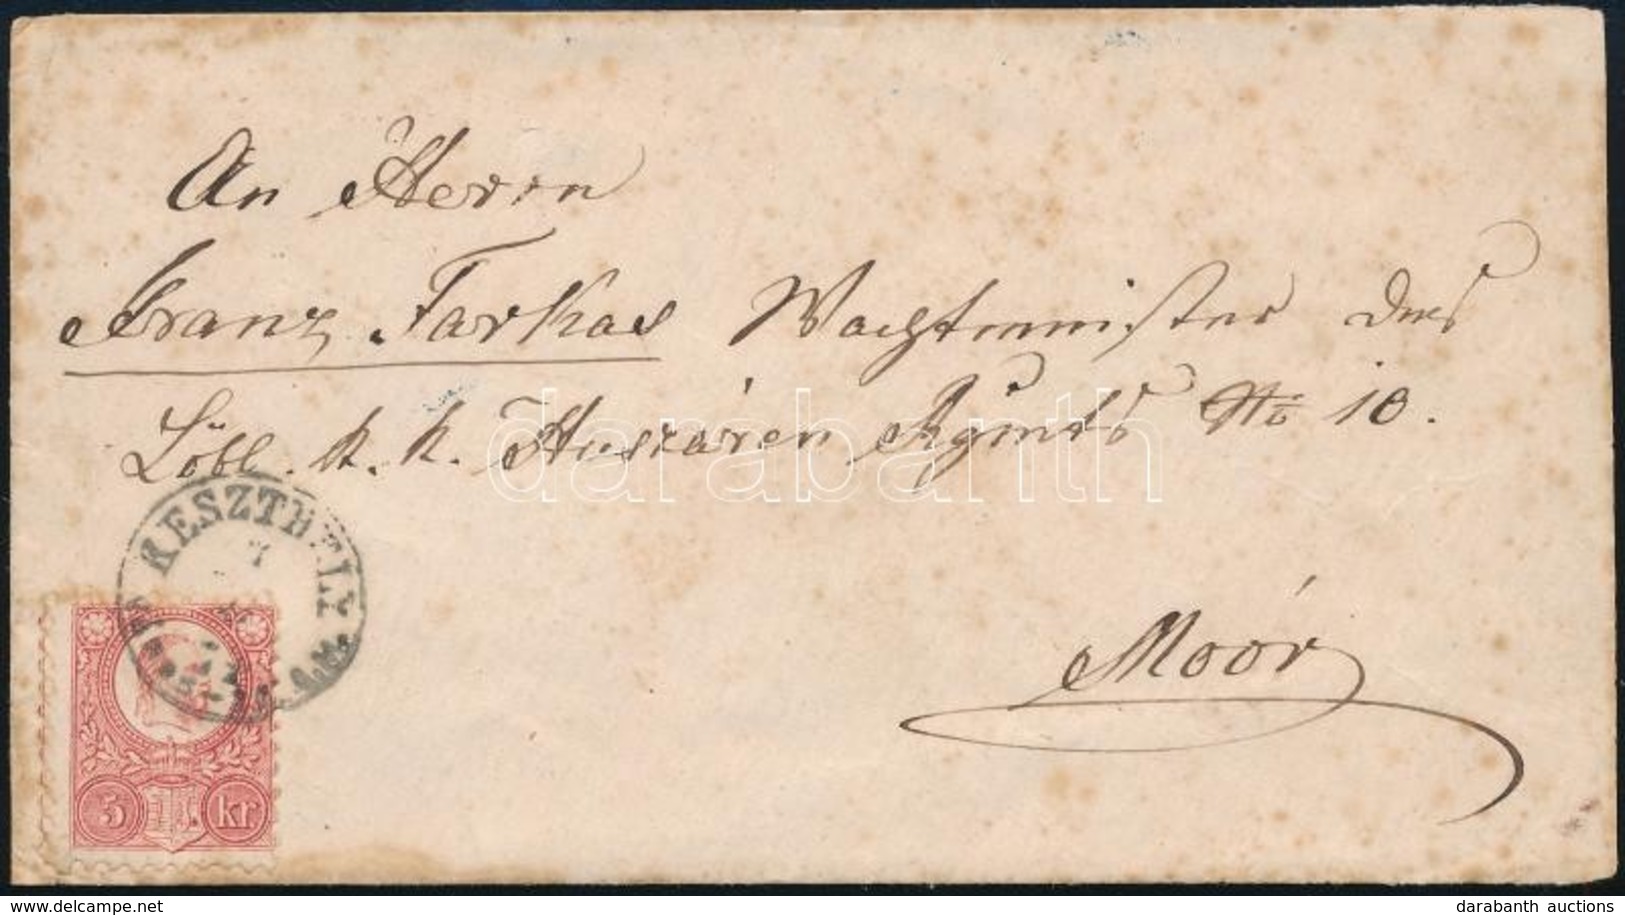 An Herrn
Franz Farkas Wachtmeister des
Löbl. k. k. Huszáren Rgmts No 10.
darabanth
KESZTHELY
7
5 kr.
Moór
delcampe.net
darabanth auctions